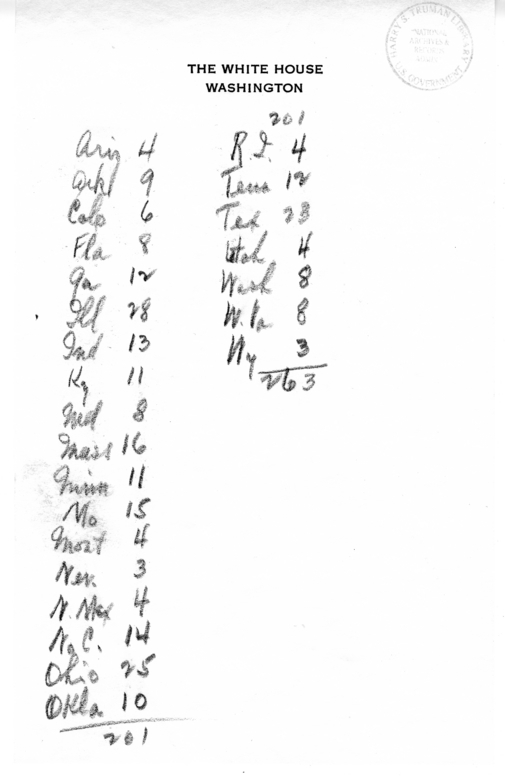 HARRY S. TRUMAN LIBRARY
NATIONAL
ARCHIVES &
U.S. GOVERNMENT
THE WHITE HOUSE
WASHINGTON
Ariz 4
Ark 9
Colo 6
Fla 8
Ga 12
Ill 28
Ind 13
Ky 11
Md 8
Mass 16
Minn 11
Mo 15
Mont 4
Nev. 3
N. Mex 4
No C. 14
Ohio 25
Okla 10
201
201
R I. 4
Tenn 12
Tex 23
Utah 4
Wash 8
W. Va 8
Wy 3
263